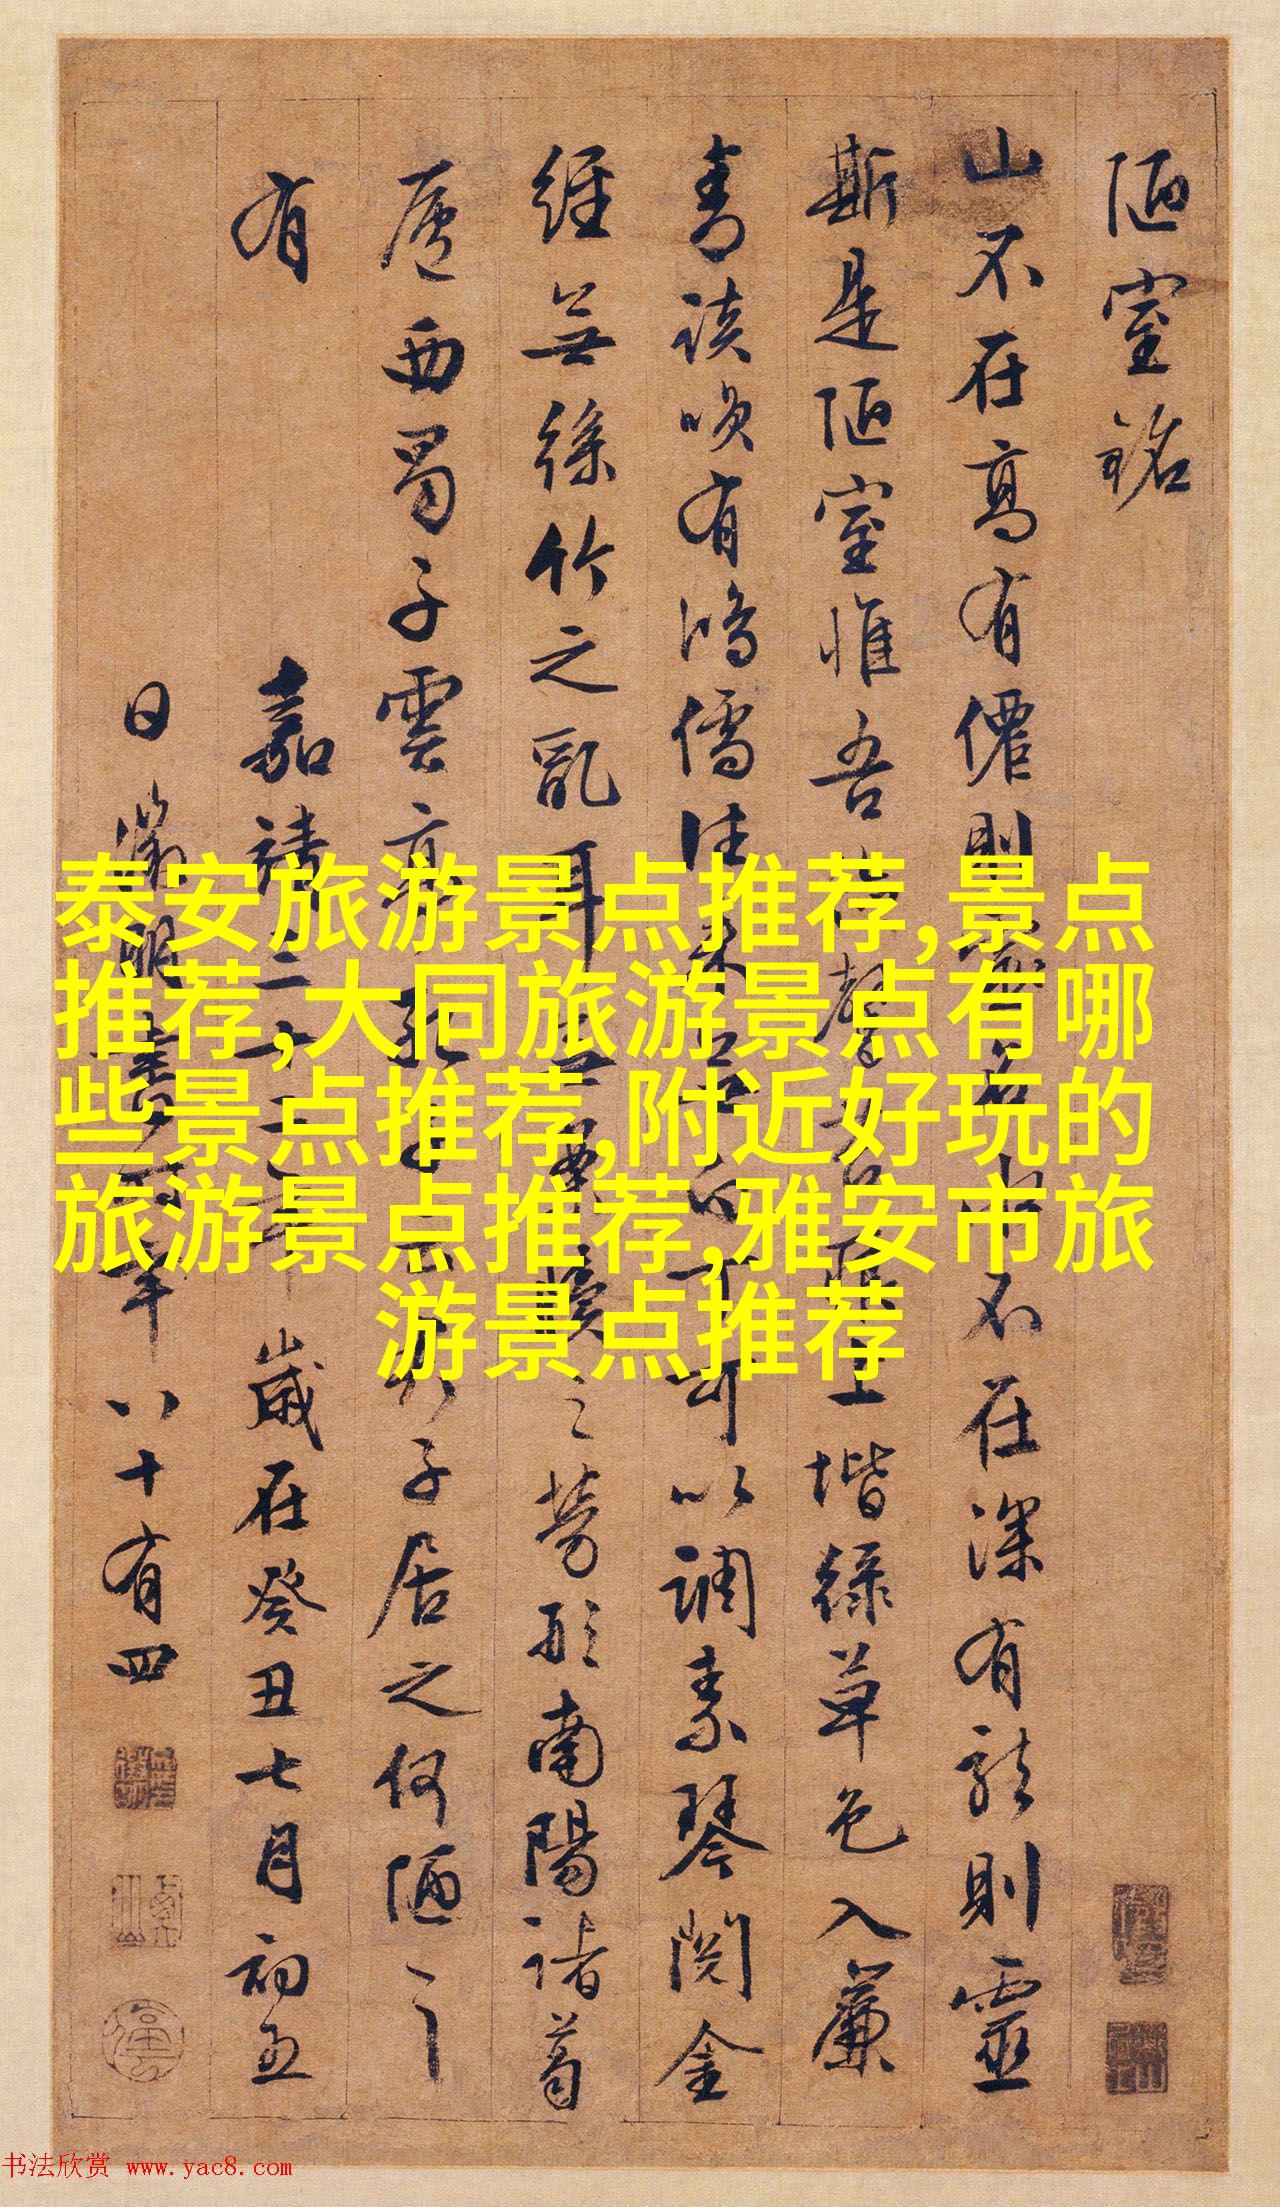 陋室銘
山不在高有僊則名水不在深有龍則靈
斯是陋室惟吾馨上堦綠草色入簾
青談咲有鴻儒往來白丁可以調素琴閱金
經無絲竹之亂耳無牘之勞形南陽諸葛
廬西蜀子雲亭孔子云君子居之何陋之
有 嘉靖三十二年歲在癸丑七月初五
日徵明書年八十有四
泰安旅游景点推荐,景点
推荐,大同旅游景点有哪
些景点推荐,附近好玩的
旅游景点推荐,雅安市旅
游景点推荐
书法欣赏 www.yac8.com